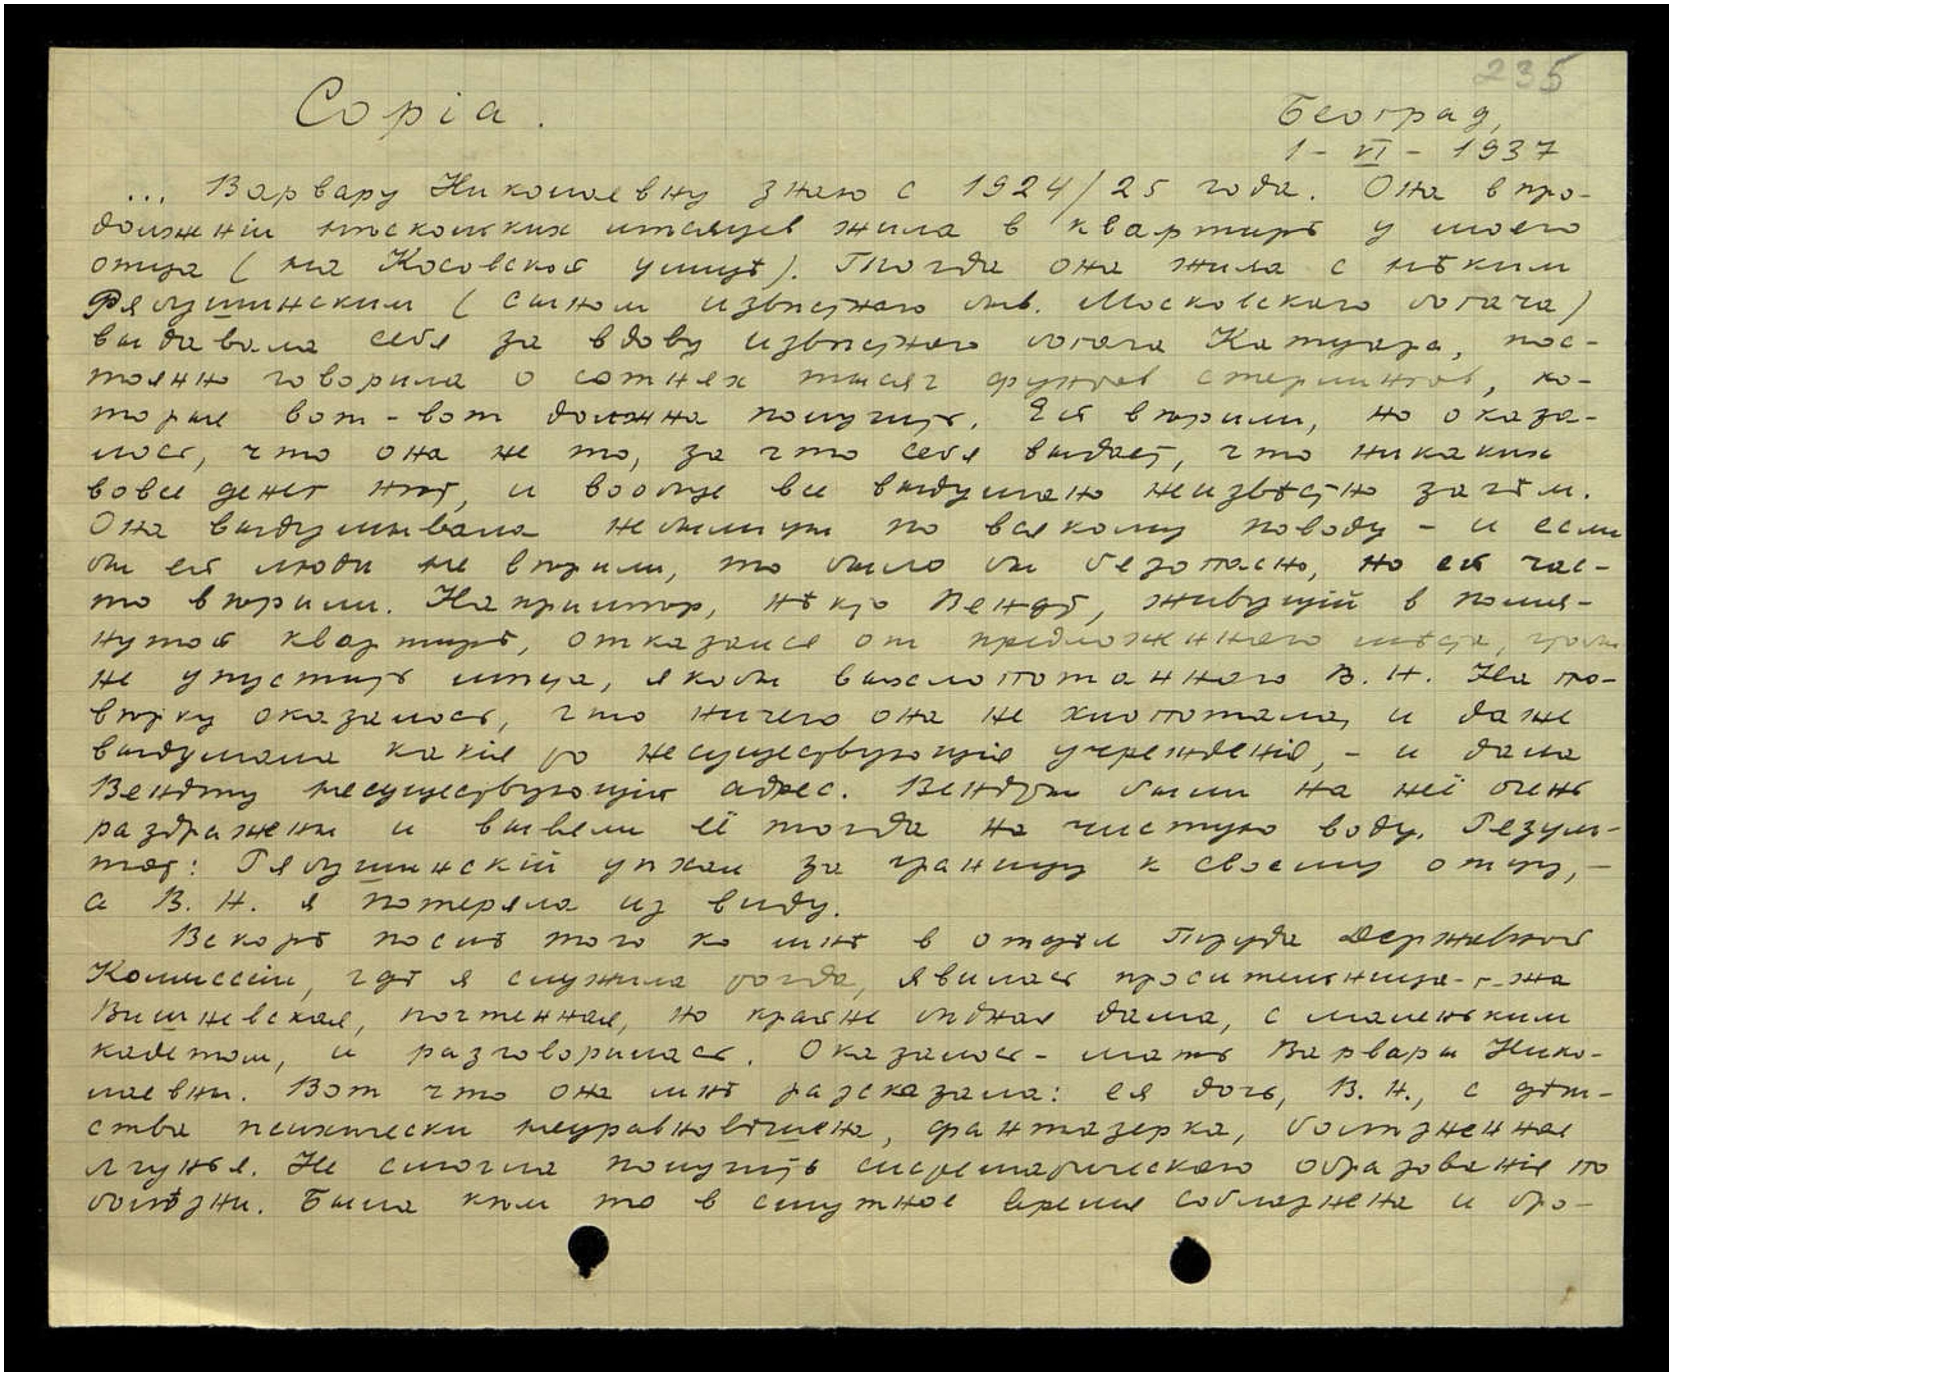 235
Copia.
Београд,
1-VI-1937
... Варвару Николаевну знаю с 1924/25 года. Она в про-
должнiи нѣскольких мѣсяцев жила в квартирѣ у моего
отца (на Косовской улицѣ). Тогда она жила с нѣким
Рябушинским (сыном извѣстного быв. Московскаго богача)
выдавала себя за вдову извѣстного богача Катуара, пос-
тоянно говорила о сотнях тысяч фунтов стерлингов, ко-
торые вот-вот должна получить. Ей вѣрили, но оказа-
лось, что она не то, за что себя выдает, что никаких
вовсе денег нѣт, и вообще все выдумано неизвѣстно зачѣм.
Она выдумывала небылицы по всякому поводу - и если
бы ей люди не вѣрили, то было бы безопасно, но ей час-
то вѣрили. Напримѣр, нѣкто Вендт, живущiй в помя-
нутой квартирѣ, отказался от предложеннаго мѣста, чтобы
не упустить мѣста, якобы выхлопотаннаго В. Н. На по-
вѣрку оказалось, что ничего она не хлопотала, и даже
выдумала какiя то несуществующiя учрежденiя, - и дала
Вендту несуществующiй адрес. Вендты были на неё очень
раздражены и вывели её тогда на чистую воду. Резуль-
тат: Рябушинскiй уѣхал за границу к своему отцу, -
а В. Н. я потеряла из виду.
Вскорѣ послѣ того ко мнѣ в отдѣл Труда Державной
Комиссiи, гдѣ я служила тогда, явилась просительница - г-жа
Вишневская, почтенная, но крайне бѣдная дама, с маленьким
кадетом, и разговорилась. Оказалось - мать Варвары Нико-
лаевны. Вот что она мнѣ разсказала: ея дочь, В. Н., с дѣт-
ства психически неуравновѣшена, фантазерка, болѣзненная
лгунья. Не смогла получить систематическаго образованiя по
болѣзни. Была кѣм то в смутное время соблазнена и бро-